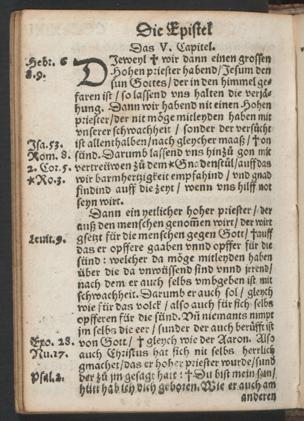 Die Epistel
Das V. Capitel.
Hebr. 6
8.9.
DIeweyl † wir dann einen grossen
Hohen priester habend / Jesum den
sun Gottes / der in den himmel ge-
faren ist / so lassend vns halten die verjä-
hung. Dann wir habend nit einen Hohen
priester / der nit möge mitleyden haben mit
vnserer schwachheit / sonder der versücht
Isa.53.
ist allenthalben / nach gleycher maaß / † on
Rom. 8.
sünd. Darumb lassend vns hinzů gon mit
2. Cor. 5.
vertreüwen zů dem * Gnadenstůl / auff das
*Ro.3.
wir barmhertzigkeit empfahind / vnd gnad
findind auff die zeyt / wenn vns hilff not
seyn wirt.
Dann ein yetlicher hoher priester / der
auß den menschen genomen wirt / der wirt
Leuit.9.
gsetzt für die menschen gegen Gott / † auff
das er opffere gaaben vnnd opffer für die
sünd : welcher da möge mitleyden haben
über die da vnwüssend sind vnnd jrrend /
nach dem er auch selbs vmbgeben ist mit
schwachheit. Darumb er auch sol / gleych
wie für das volck / also auch für sich selbs
opfferen für die sünd. Vñ niemants nimpt
jm selbs die eer / sunder der auch berüfft ist
Exo. 28.
von Gott / † gleych wie der Aaron. Also
Nu.17.
auch Christus hat sich nit selbs herrlich
gmachet / das er hoher priester wurde / sund
Psal.2.
der zů jm gesagt hatt : † Du bist mein sun /
hütt hab ich dich geboren. Wie er auch am
anderen